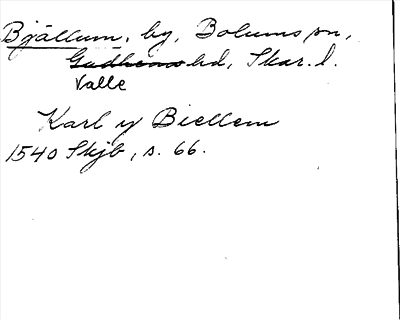 Bjällum, by, Bolums sn,
Gudhems hd, Skar. l.
Valle
Karl y Biellem
1540 Skjb, s. 66.